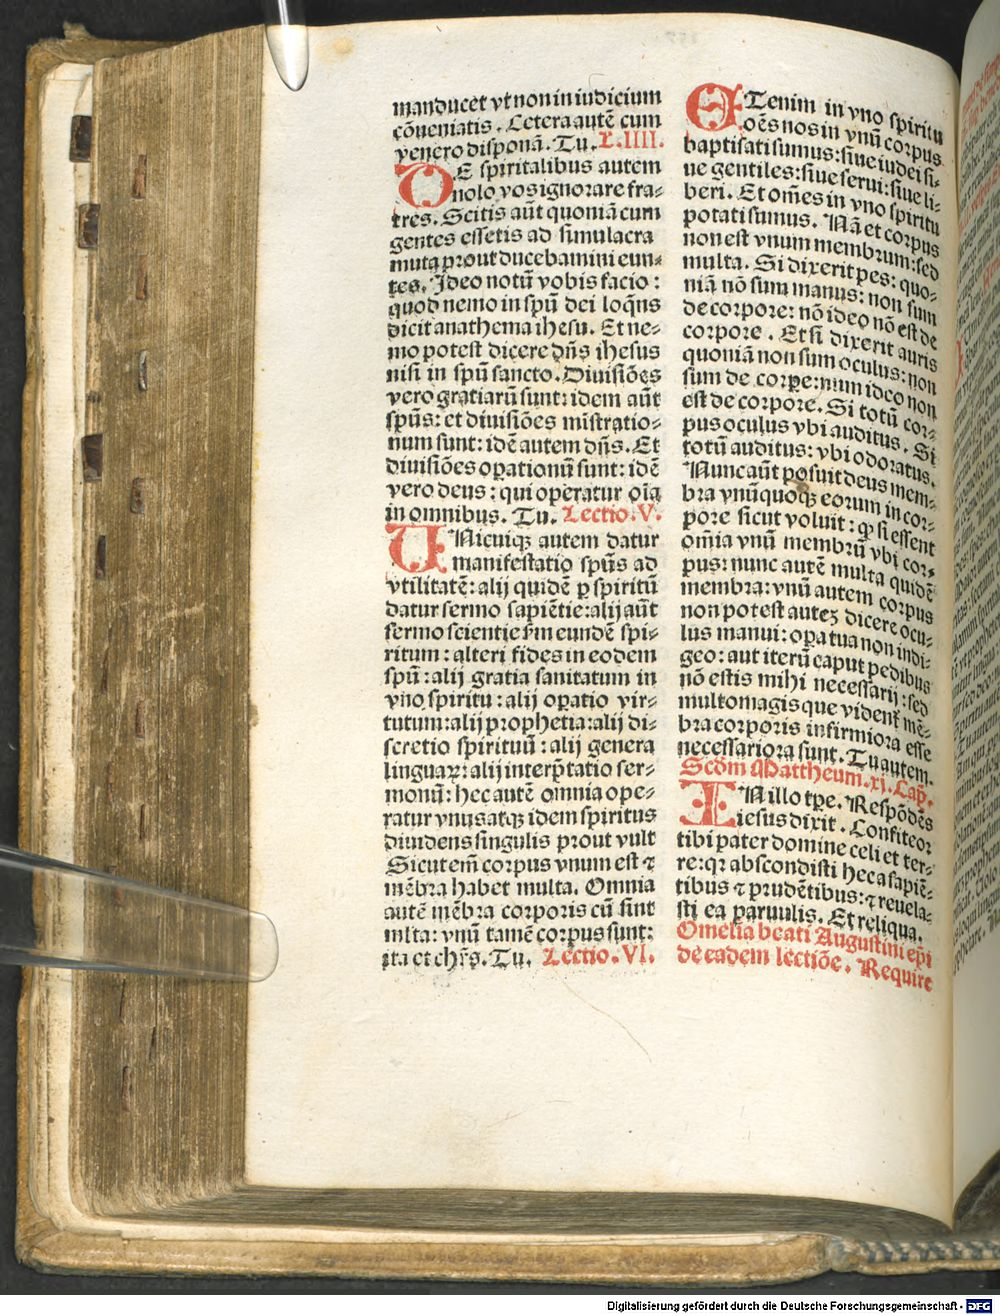 manducet vt non in iudicium
cōueniatis. Cetera autē cum
venero disponā. Tu. L. IIII.
DE spiritalibus autem
nolo vos ignorare fra⸗
tres. Scitis aūt quoniā cum
gentes essetis ad simulacra
muta prout ducebamini eun⸗
tes. Ideo notū vobis facio:
quod nemo in spū dei loq̄ns
dicit anathema ihesu. Et ne⸗
mo potest dicere dn̄s ihesus
nisi in spū sancto. Diuisiōes
vero gratiarū sunt: idem aūt
spūs: et diuisiōes mīstratio⸗
num sunt: idē autem dn̄s. Et
diuisiōes oꝑationū sunt: idē
vero deus: qui operatur oīa
in omnibus. Tu. Lectio. V.
UNicuiqꝫ autem datur
manifestatio spūs ad
vtilitatē: alij quidē ꝑ spiritū
datur sermo sapiētie: alij aūt
sermo scientie ẜm eundē spi⸗
ritum: alteri fides in eodem
spū: alij gratia sanitatum in
vno spiritu: alij oꝑatio vir⸗
tutum: alij prophetia: alij di⸗
scretio spirituū: alij genera
linguaꝝ: alij interp̄tatio ser⸗
monū: hec autē omnia ope⸗
ratur vnus atqꝫ idem spiritus
diuidens singulis prout vult
Sicut em̄ corpus vnum est ⁊
mēbra habet multa. Omnia
autē mēbra corporis cū sint
mlta: vnū tamē corpus sunt:
ita et chr̄s. Tu. Lectio. VI.
ETenim in vno spiritu
oēs nos in vnū corpus
baptisati sumus: siue iudei si⸗
ue gentiles: siue serui: siue li⸗
beri. Et om̄es in vno spiritu
potati sumus. Nā et corpus
non est vnum membrum: sed
multa. Si dixerit pes: quo⸗
niā nō sum manus: non sum
de corpore: nō ideo nō est de
corpore. Et si dixerit auris
quoniā non sum oculus: non
sum de corꝑe: num ideo non
est de corpore. Si totū cor⸗
pus oculus vbi auditus. Si
totū auditus: vbi odoratus.
Nunc aūt posuit deus mem⸗
bra vnūquoqꝫ eorum in cor⸗
pore sicut voluit: qꝙ si essent
om̄ia vnū membrū vbi cor⸗
pus: nunc autē multa quidē
membra: vnū autem corpus
non potest auteꝫ dicere ocu⸗
lus manui: oꝑa tua non indi⸗
geo: aut iterū caput pedibus
nō estis mihi necessarij: sed
multo magis que vident̄ mē⸗
bra corporis infirmiora esse
necessariora sunt. Tu autem.
Scd̄m Mattheum. xj. Cap̄.
IN illo tꝑe. Respōdēs
iesus dixit. Confiteor
tibi pater domine celi et ter⸗
re: qꝛ abscondisti hec a sapiē⸗
tibus ⁊ prudētibus: ⁊ reuela⸗
sti ea ꝑuulis. Et reliqua.
Omelia beati Augustini ep̄i
de eadem lectiōe. Require
Digitalisierung gefördert durch die Deutsche Forschungsgemeinschaft - DFG